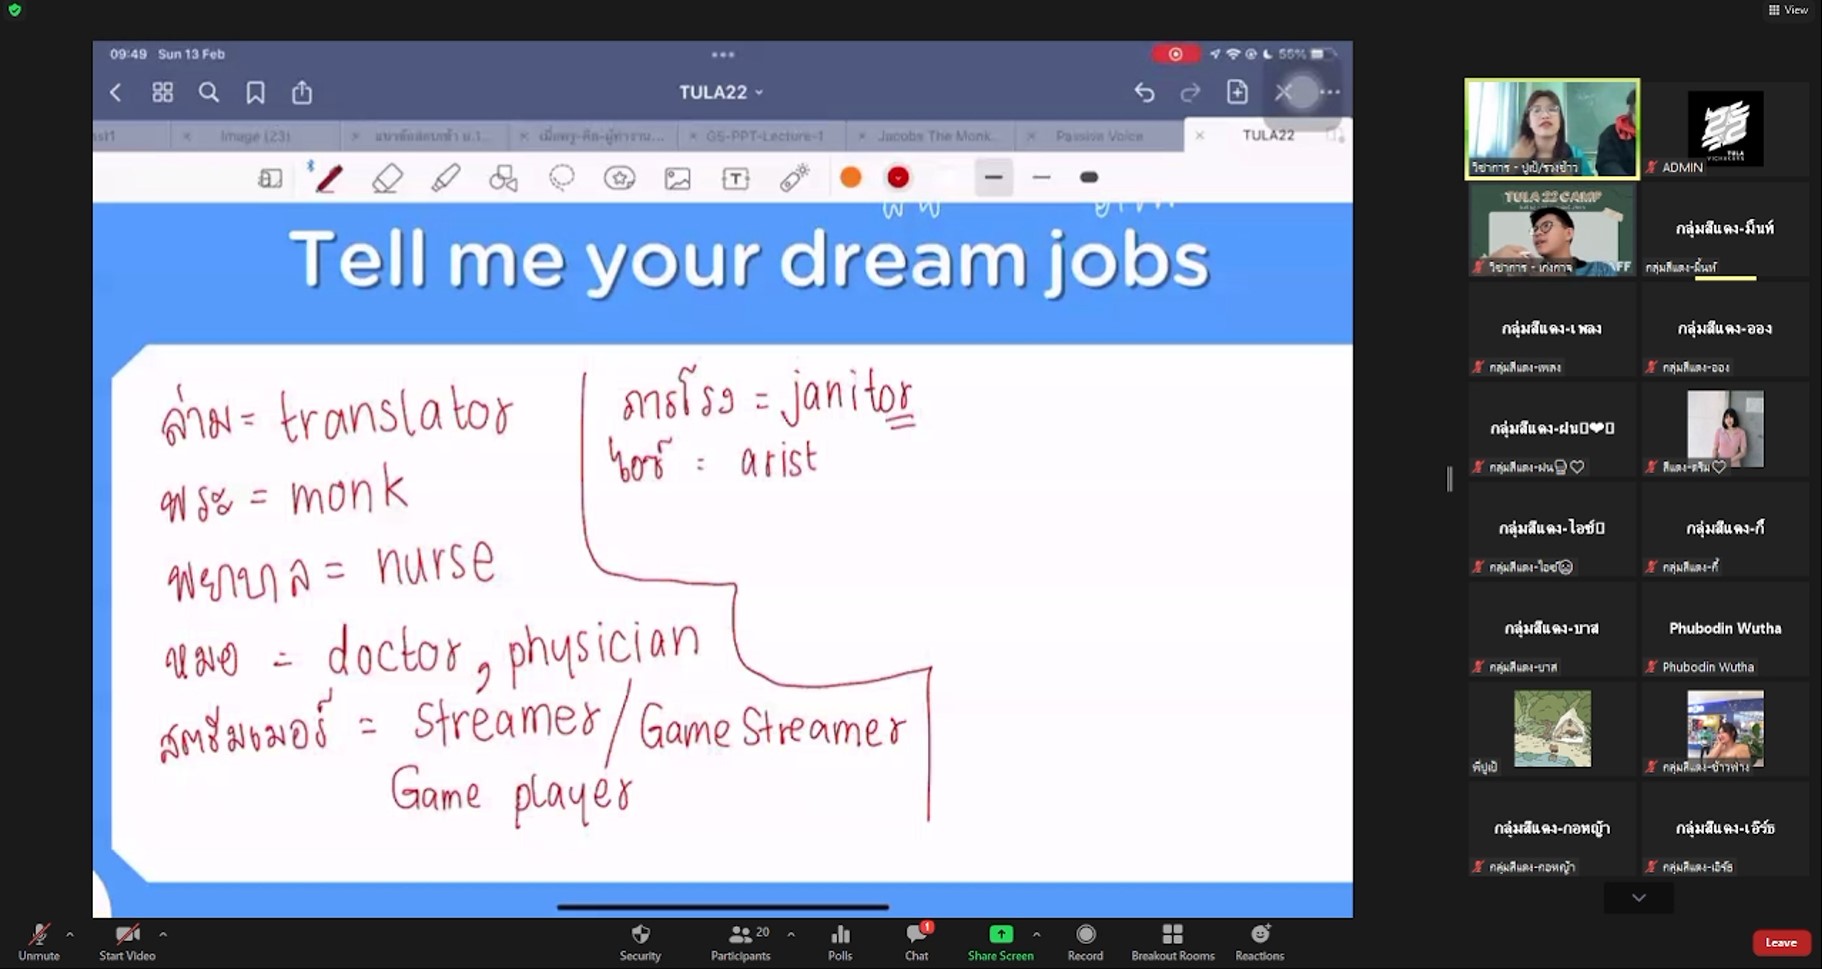 View
09:49 Sun 13 Feb
55%
TULA22
Image (23)
G5-PPT-Lecture-1
Jacobs The Monk...
Passive Voice
TULA22
Tell me your dream jobs
ล่าม = translator
พระ = monk
พยาบาล = nurse
หมอ = doctor, physician
สตรีมเมอร์ = streamer / Game Streamer
Game player
ภารโรง = janitor
ไอซ์ = arist
วิชาการ - ปูเป้/รวงข้าว
ADMIN
TULA 22 CAMP
วิชาการ - เก่งกาจ
กลุ่มสีแดง-มิ้นท์
กลุ่มสีแดง-มิ้นท์
กลุ่มสีแดง-เพลง
กลุ่มสีแดง-เพลง
กลุ่มสีแดง-ออง
กลุ่มสีแดง-ออง
กลุ่มสีแดง-ฝน
กลุ่มสีแดง-ฝน
สีแดง-ครีม
กลุ่มสีแดง-ไอซ์
กลุ่มสีแดง-ไอซ์
กลุ่มสีแดง-กี้
กลุ่มสีแดง-กี้
กลุ่มสีแดง-บาส
กลุ่มสีแดง-บาส
Phubodin Wutha
Phubodin Wutha
พี่ปูเป้
กลุ่มสีแดง-ข้าวฟ่าง
กลุ่มสีแดง-กอหญ้า
กลุ่มสีแดง-กอหญ้า
กลุ่มสีแดง-เอิร์ธ
กลุ่มสีแดง-เอิร์ธ
Unmute
Start Video
Security
20
Participants
Polls
1
Chat
Share Screen
Record
Breakout Rooms
Reactions
Leave